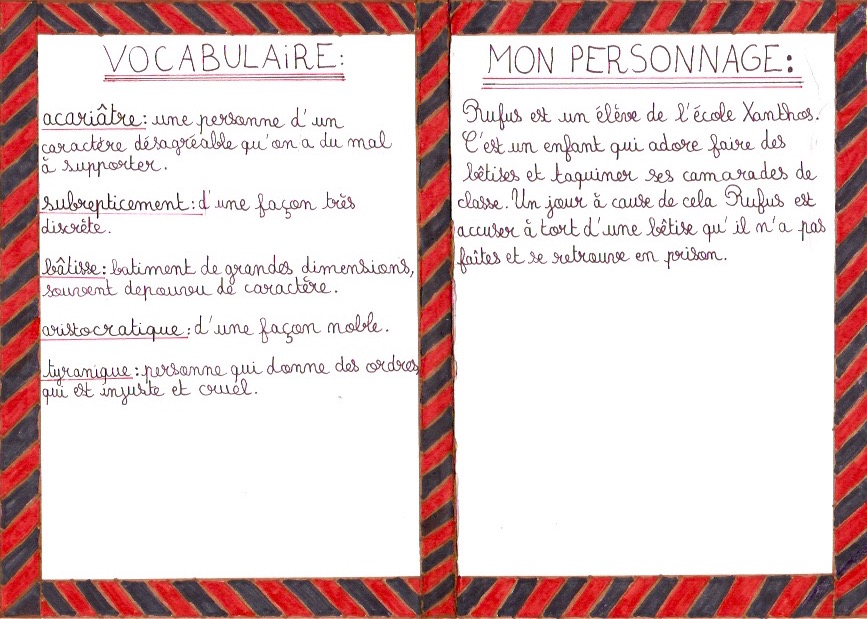 VOCABULAIRE:
acariâtre: une personne d'un
caractère désagréable qu'on a du mal
à supporter.
subrepticement: d'une façon très
discrète.
bâtisse: batiment de grandes dimensions,
souvent depourvu de caractère.
aristocratique: d'une façon noble.
tyranique: personne qui donne des ordres,
qui est injuste et cruel.
MON PERSONNAGE:
Rufus est un élève de l'école Xanthos.
C'est un enfant qui adore faire des
bêtises et taquiner ses camarades de
classe. Un jour à cause de cela Rufus est
accuser à tort d'une bêtise qu'il n'a pas
faîtes et se retrouve en prison.